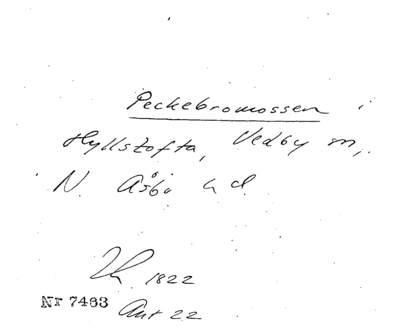 Peckebromossen i
Hyllstofta, Vedby m,
N. Åsbo hd.
1822
Nr 7463 Ant 22